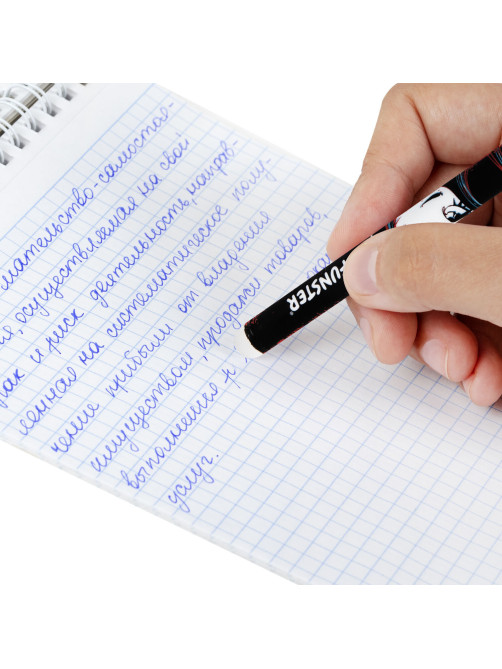 мательство-самостоя-
я, осуществляемая на свой
рах и риск деятельность, направ-
ленная на систематическое полу-
чение прибыли от владения
имуществом, продажи товаров,
выполнения
услуг.
FUNSTER®